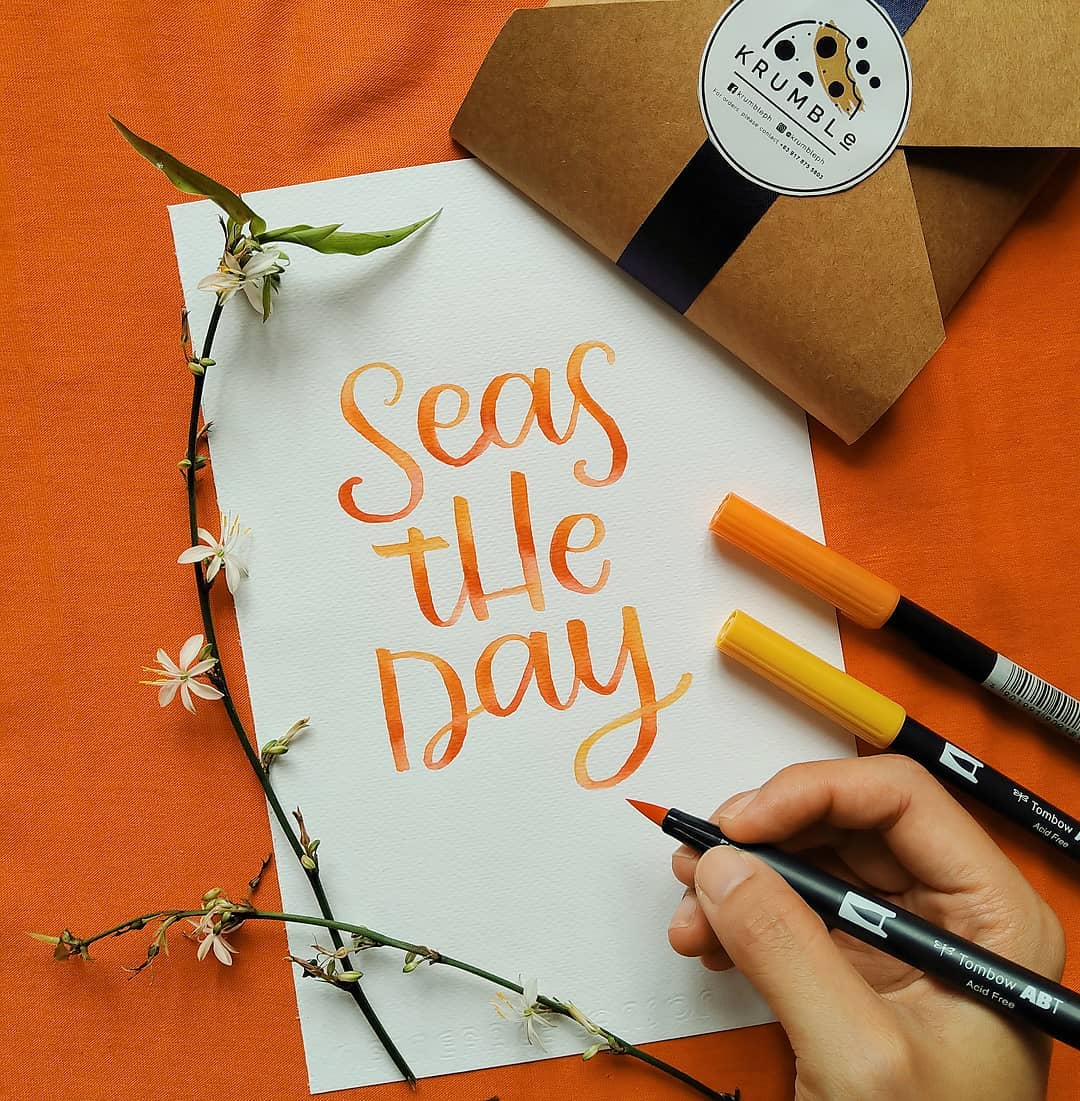 KRUMBLe
krumbleph @krumbleph
For orders, please contact +63 917 875 5803
Seas
tHe
Day
Tombow
Acid Free
Tombow ABT
Acid Free